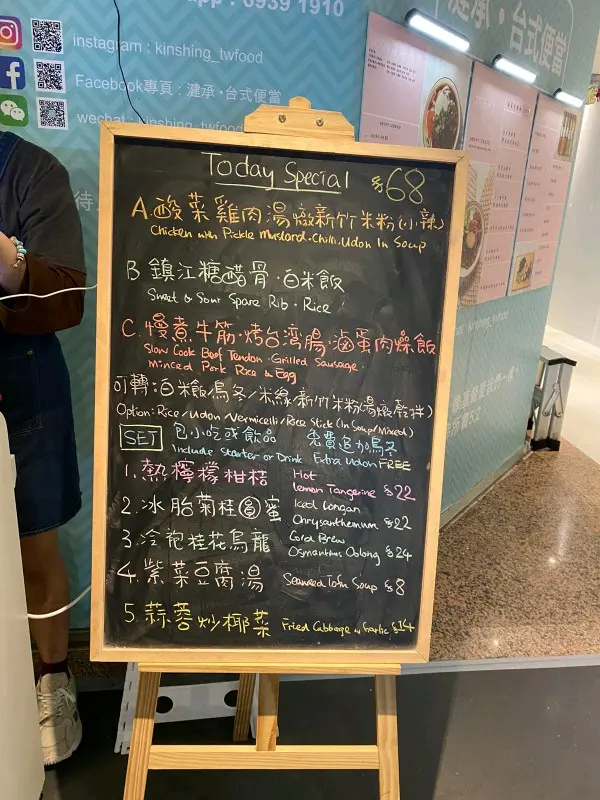 6939 1910
instagram : kinshing_twfood
Facebook專頁 : 瀽承・台式便當
wechat : kinshing_twfood
台式便當
Today Special $68
A.酸菜雞肉湯燉新竹米粉(小辣)
Chicken with Pickle Mustard・Chilli, Udon In Soup
B 鎮江糖醋骨・白米飯
Sweet & Sour Spare Rib・Rice
C.慢煮牛筋・烤台湾腸・滷蛋肉燥飯
Slow Cook Beef Tendon・Grilled Sausage・
Minced Pork Rice & Egg
可轉:白米飯/烏冬/米線/新竹米粉(湯燉/乾拌)
Option: Rice/Udon/Vermicelli/Rice Stick (In Soup/Mixed)
SET 包小吃或飲品 免費追加烏冬
Include Starter or Drink Extra Udon FREE
1.熱檸檬柑桔 Hot Lemon Tangerine $22
2.冰胎菊桂圓蜜 Iced Longan Chrysanthemum $22
3.冷泡桂花烏龍 Cold Brew Osmanthus Oolong $24
4.紫菜豆腐湯 Seaweed Tofu Soup $8
5.蒜蓉炒椰菜 Fried Cabbage w Garlic $14